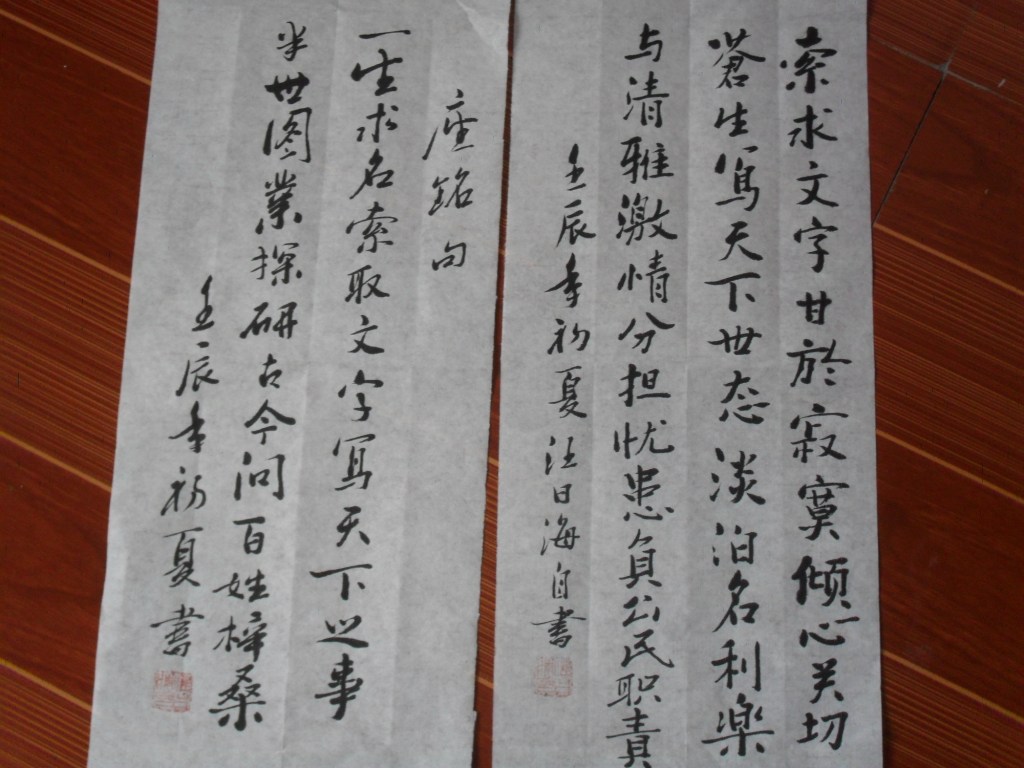 索求文字甘於寂寞倾心关切
蒼生写天下世态淡泊名利樂
与清雅激情分担忧患负公民职责
壬辰年初夏汪日海自書
座銘句
一生求名索取文字写天下之事
半世图業探研古今问百姓梓桑
壬辰年初夏書